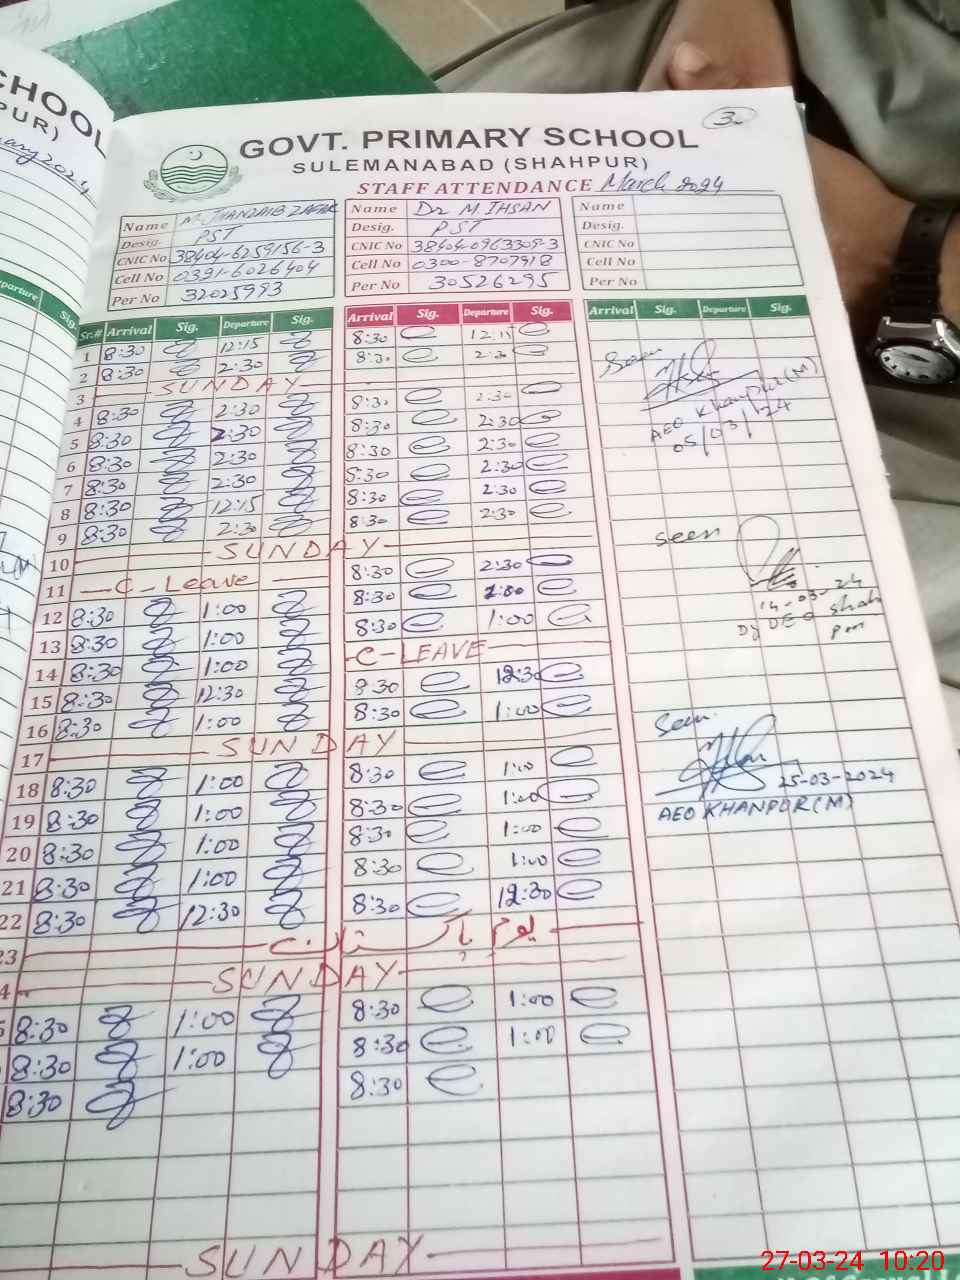 CHOOL
PUR)
GOVT. PRIMARY SCHOOL
3
SULEMANABAD (SHAHPUR)
STAFF ATTENDANCE March 2024
Name
Desig. PST
CNIC No 38404-6259156-3
Cell No 0391-6026404
Per No 32025993
Name Dr M. IHSAN
Desig. PST
CNIC No 38404-0963309-3
Cell No 0300-8707918
Per No 30526295
Name
Desig.
CNIC No
Cell No
Per No
Departure Sig.
Sr.# Arrival Sig. Departure Sig. Arrival Sig. Departure Sig. Arrival Sig. Departure Sig.
1 8:30 12:15 8:30 12:15
2 8:30 2:30 8:30 2:30
3 SUNDAY
4 8:30 2:30 8:30 2:30
5 8:30 2:30 8:30 2:30
6 8:30 2:30 8:30 2:30
7 8:30 2:30 8:30 2:30
8 8:30 12:15 8:30 2:30
9 8:30 2:30 8:30 2:30
10 SUNDAY
11 C-Leave 8:30 2:30
12 8:30 1:00 8:30
13 8:30 1:00 8:30 1:00
14 8:30 1:00 C-LEAVE
15 8:30 12:30 8:30 12:30
16 8:30 1:00 8:30 1:00
17 SUNDAY
18 8:30 1:00 8:30 1:00
19 8:30 1:00 8:30 1:00
20 8:30 1:00 8:30 1:00
21 8:30 1:00 8:30 1:00
22 8:30 12:30 8:30 12:30
23 یوم پاکستان
4 SUNDAY
8:30 1:00 8:30 1:00
8:30 1:00 8:30 1:00
8:30 8:30
SUNDAY
Seen
AEO Khanpur (M)
05/03/24
seen
14-03-24
Dy DEO
Seen
25-03-2024
AEO KHANPUR (M)
27-03-24 10:20